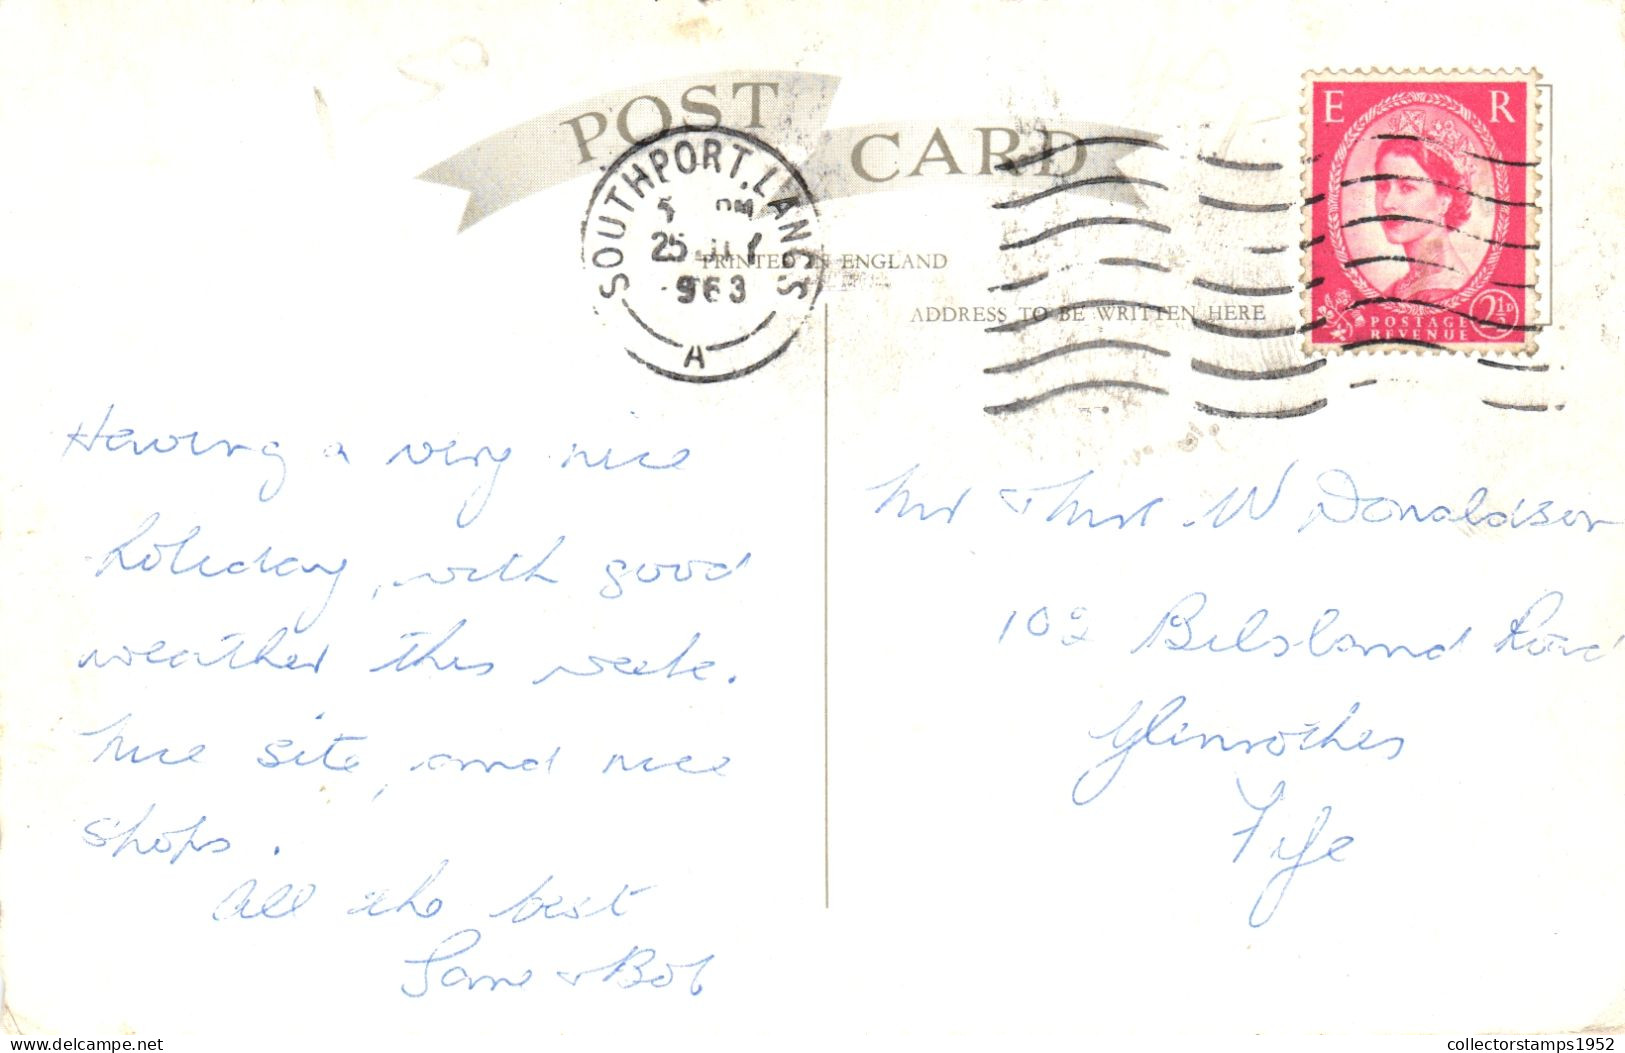 POST CARD
SOUTHPORT, LANCS
PM
25 JLY
963
A
PRINTED IN ENGLAND
ADDRESS TO BE WRITTEN HERE
E R
POSTAGE
REVENUE
2½D
Having a very nice
holiday, with good
weather this week.
Nice site, and nice
shops.
All the best
Jane & Bob
Mr & Mrs W Donaldson
102 Bilsland Road
Glenrothes
Fife
www.delcampe.net
collectorstamps1952